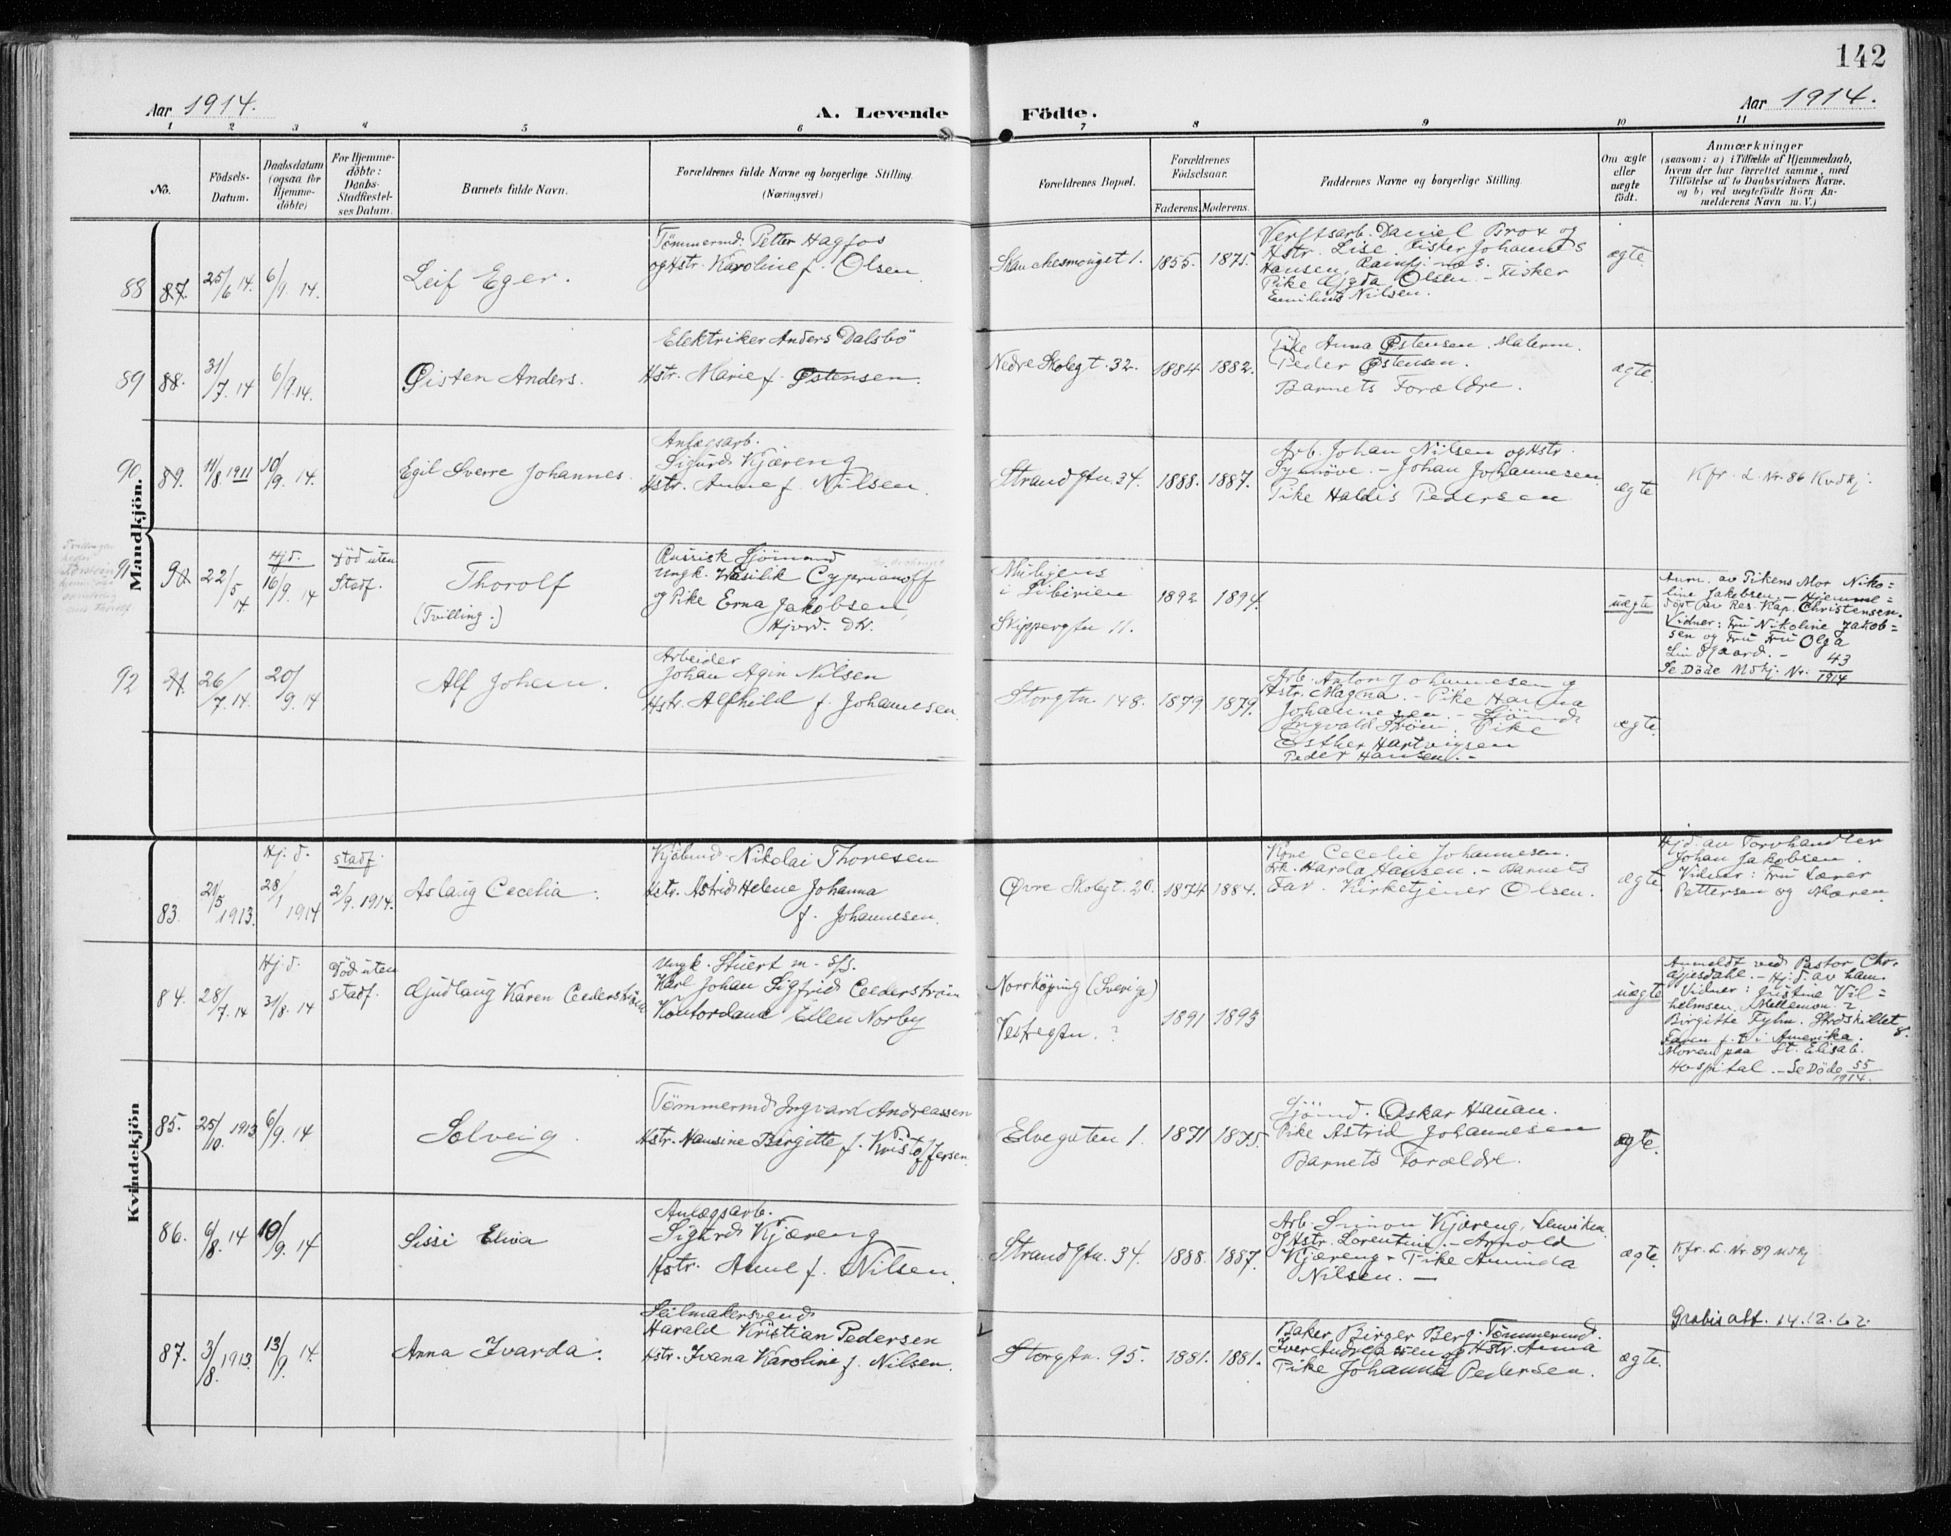 142
Aar 1914. A. Levende Födte. Aar 1914.
1 2 3 4 5 6 7 8 9 10 11
No.
Födsels-
Datum.
Daabsdatum
(ogsaa for
Hjemme-
döbte)
For Hjemme-
döbte:
Daabs-
Stadfæstel-
ses Datum.
Barnets fulde Navn.
Forældrenes fulde Navne og borgerlige Stilling.
(Næringsvei)
Forældrenes Bopæl.
Forældrenes
Födselsaar.
Faderens. Moderens.
Faddernes Navne og borgerlige Stilling.
Om ægte
eller
uægte
født.
Anmærkninger
(saasom: a) i Tilfælde af Hjemmedaab,
hvem der har forrettet samme, med
Tilföielse af to Daabsvidners Navne.
og b) ved uægtefödte Börn An-
melderens Navn m. V.)
Mandkjön.
88 87. 25/6 14. 6/9. 14. Leif Eger.
Tömmermd. Petter Hagfos
og Hstr. Karoline f. Olsen
1. 1855. 1875.
Verftsarb. Daniel Brox og
Hstr. Lise. Fisker Johannes
Hansen,
Pike Olsen. - Fisker
Nilsen.
ægte.
89 88. 31/7. 14 6/9. 14. Øisten Anders.
Elektriker Anders Dalsbö
Hstr. Marie f. Østensen.
Nedre Skolegt. 32. 1884 1882.
Pike Anna Østensen. Malerm.
Peder Østensen.
Barnets Forældre.
ægte.
90 89. 11/8. 1911 10/9. 14. Egil Sverre Johannes.
Anlægsarb.
Sigurd Kjæreng
Hstr. Anne f. Nilsen.
Strandgtn. 34. 1888. 1887.
Arb. Johan Nilsen og Hstr.
Synnöve. - Johan Johannesen
Pike Haldis Pedersen
ægte
Kfr. L. Nr. 86 Kvdkj.
91 90 22/5 14 Hjd. 16/9. 14 Död uten
Stadf.
Thorolf
(Tvilling.)
Russisk Sjömand
Ungk. Wasilik Cyprianoff
og Pike Erna Jakobsen,
Hjvrd. dtr.
i Sibirien
Skippergtn 11.
1892 1894.
uægte
Anm. av Pikens Mor Niko-
line Jakobsen. - Hjemme-
döpt av Res. Kap. Christensen.
Vidner: Fru Nikoline Jakob-
sen og Fru Olga
Lindgaard. -
Se Döde Mdkj. Nr. 43/1914
92 91 26/7. 14. 20/9. 14 Alf Johan.
Arbeider
Johan Agin Nilsen
Hstr. Alfhild f. Johannesen.
Storgtn. 148. 1879 1879.
Arb. Anton Johannesen og
Hstr. Magna. - Pike Hanna
Johannesen. - Sjömd.
Ingvald Ström. Pike
Esther Hartvigsen
Peder Hansen. -
ægte.
Kvindekjön
83. 21/5 1913. Hj. d. 28/1 1914 stadf. 2/9. 1914. Aslaug Cecelia.
Kjöbmd. Nikolai Thoresen
Hstr. Astrid Helene Johanna
f. Johannesen.
Övre Skolegt. 20. 1874 1884.
Kone Cecelie Johannesen.
Frk. Harda Hansen. - Barnets
Far. Kirketjener Olsen.
ægte.
Hjd. av Torvhandler
Johan Jakobsen.
Vidner: Fru Lærer
Pettersen og Maren.
84. 28/7. 14 Hj. d. 31/8. 14 Död uten
stadf.
Gudlaug Karen Cederström
Ungk. Stuert m.
Karl Johan Sigfrid Cederström
Kontordame Ellen Norby
Norrköping (Sverige)
Vestregtn. ?
1891 1893
uægte
Anmeldt ved Pastor Chr.
Gjesdahl. - Hj. d. av ham.
Vidner: Justine Vil-
helmsen, Mellemvn. 2
Birgitte Fyhn. Strdskillet 8.
Faren f. T. i Amerika.
Moren paa St. Elisab.
Hospital. - Se Döde 55/1914.
85. 25/10. 1913 6/9. 14 Solveig.
Tömmermd Ingvard Andreassen
Hstr. Hansine Birgitte f. Kristoffersen.
Elvegaten 1. 1871 1875.
Sjömd. Oskar Hauan.
Pike Astrid Johannesen
Barnets Forældre.
ægte.
86. 6/8. 14 10/9. 14 Sissi Elvia
Anlægsarb.
Sigurd Kjæreng
Hstr. Anne f. Nilsen.
Strandgtn. 34. 1888. 1887.
Arb. Simon Kjæreng, Lenviken
og Hstr. Lorentine. - Arnold
Kjæreng - Pike Aminda
Nilsen. -
ægte.
Kfr. L. Nr. 89 Mdkj
87. 3/8. 1913. 13/9. 14. Anna Ivarda.
Seilmakersvend
Harald Kristian Pedersen
Hstr. Ivana Karoline f. Nilsen.
Storgtn. 95. 1881. 1881.
Baker Birger Berg. Tömmermd.
Iver Andreassen og Hstr. Anna
Pike Johanna Pedersen.
ægte.
Gratis att. 14.12.62.